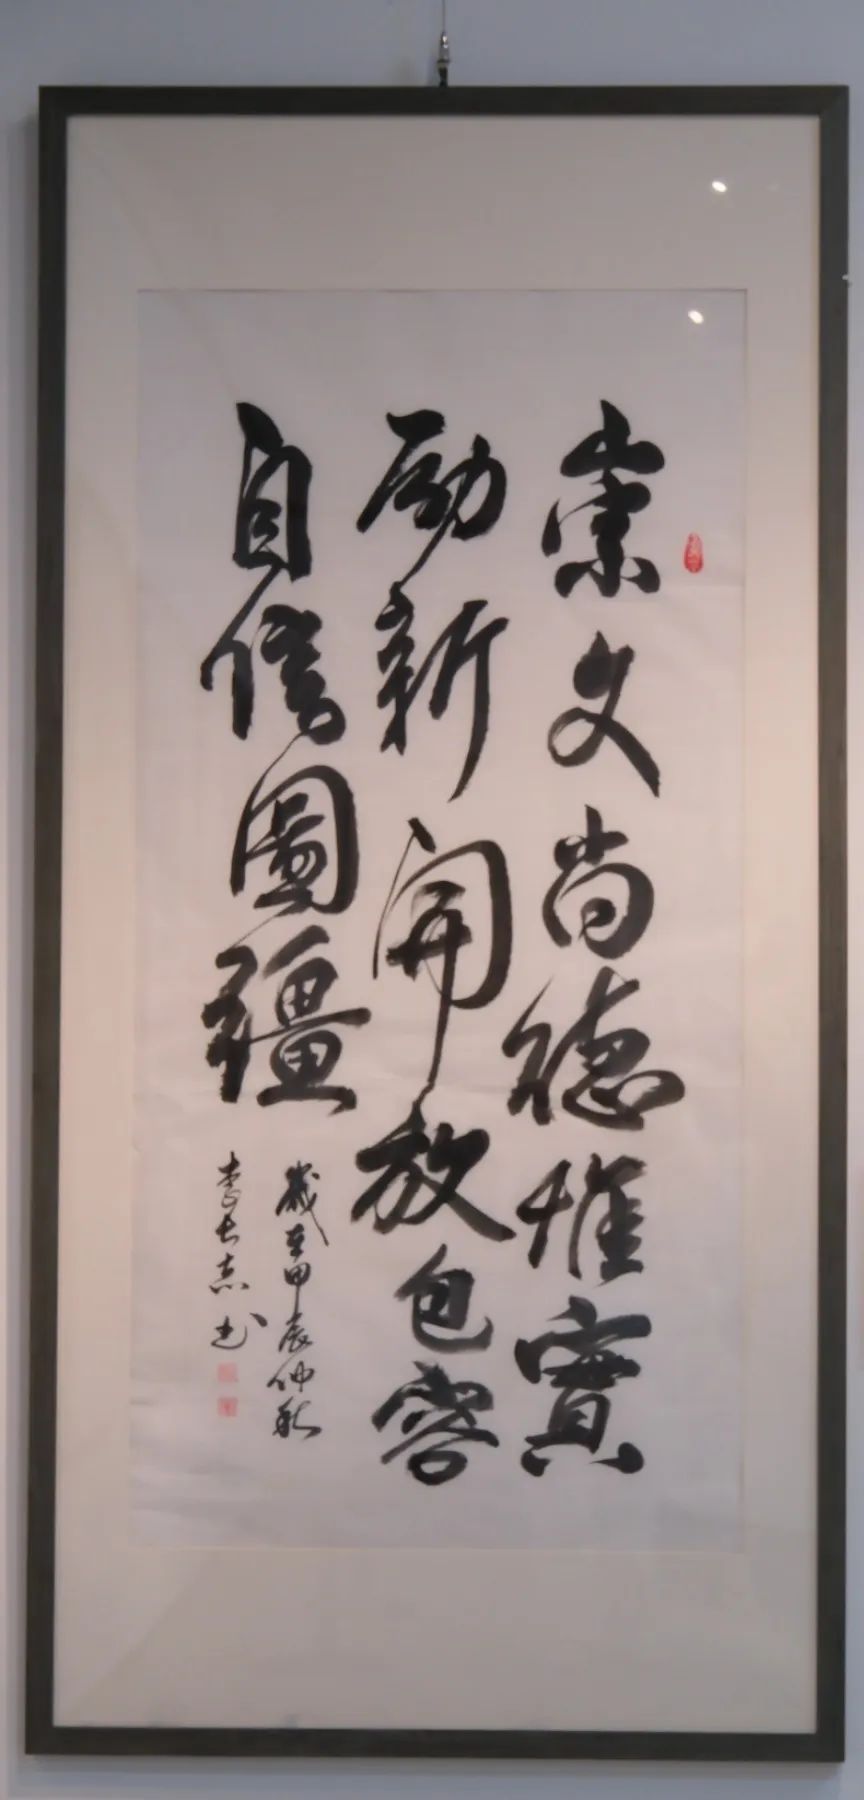 崇文尚德惟實
励新開放包容
自信圖疆
歲在甲辰仲秋
李长志书